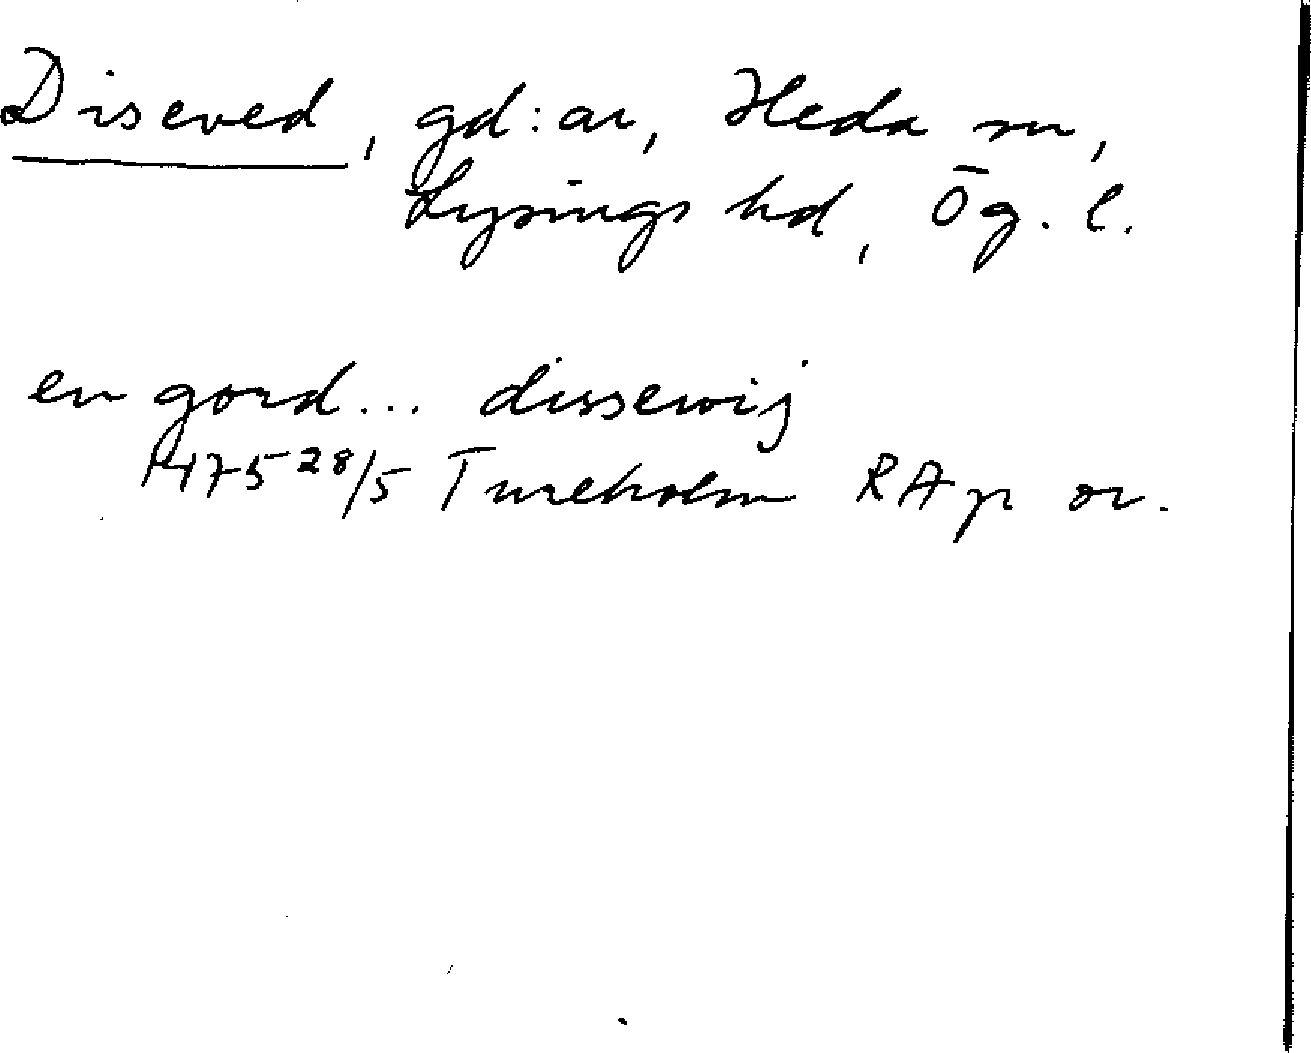 Diseved, gd:ar, Heda sn,
Lysings hd, Ög. l.
en gord... dissewij
1475 28/5 Tureholm RAp or.